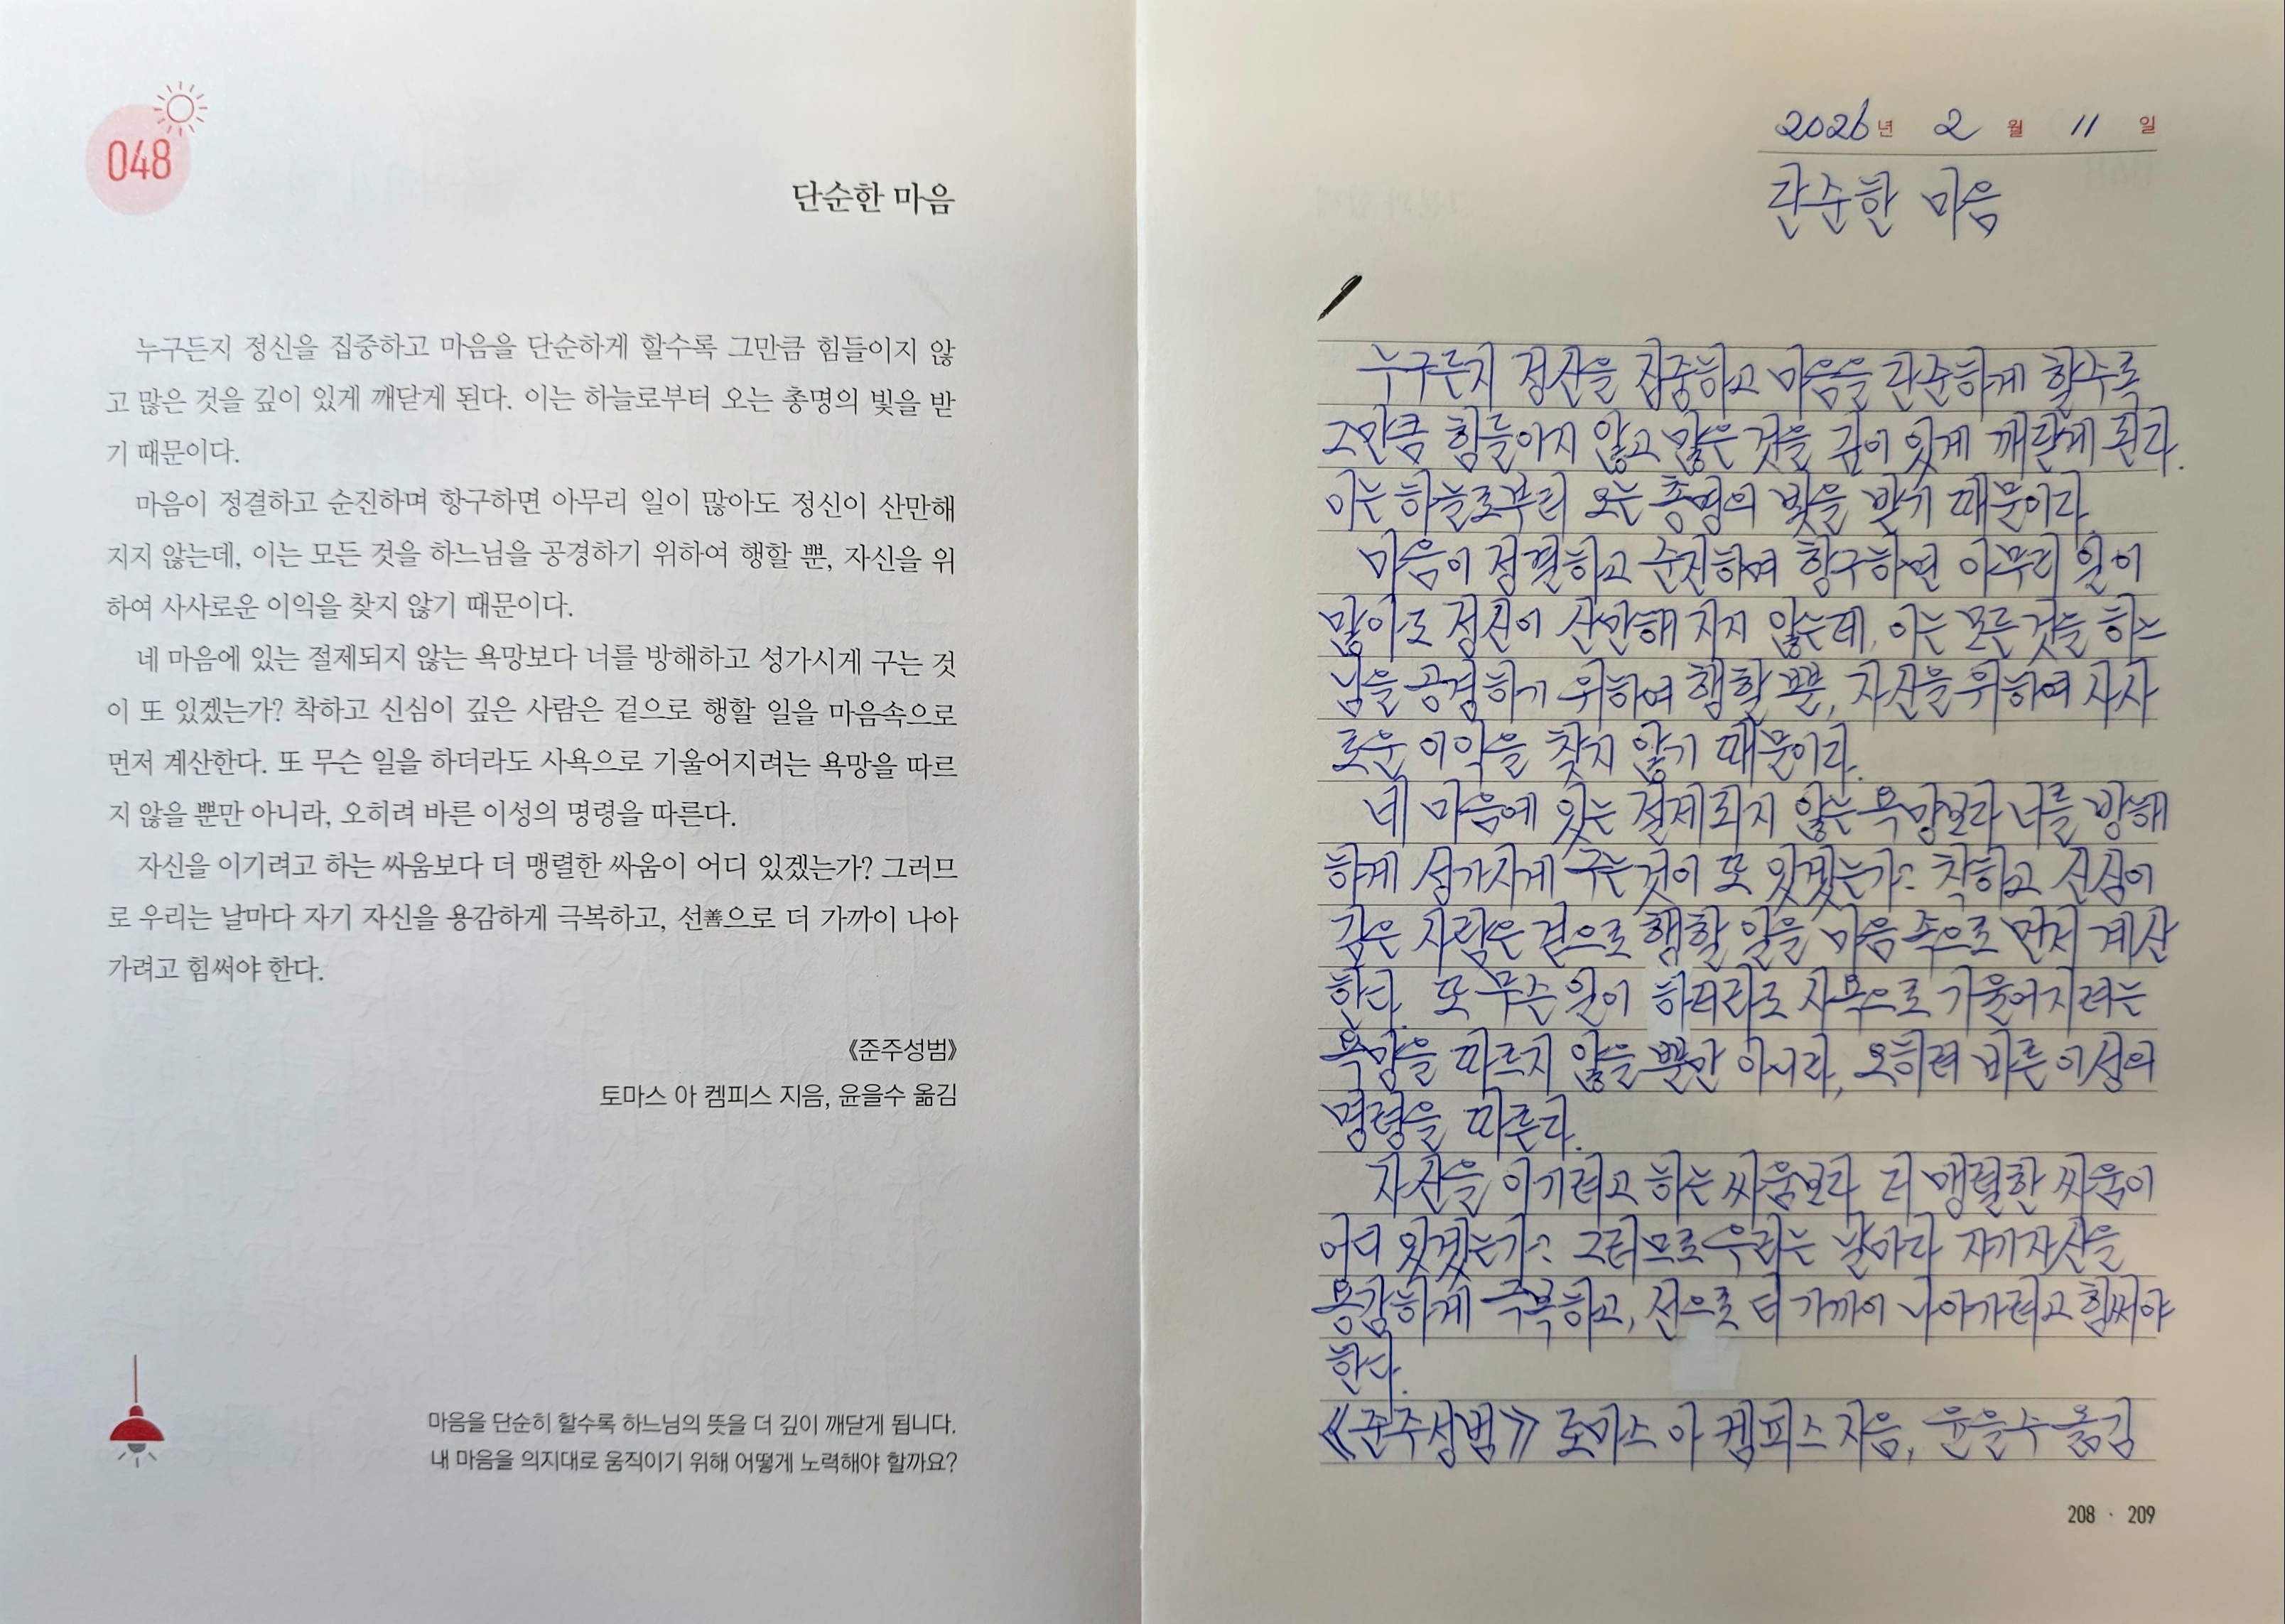 048
단순한 마음
누구든지 정신을 집중하고 마음을 단순하게 할수록 그만큼 힘들이지 않
고 많은 것을 깊이 있게 깨닫게 된다. 이는 하늘로부터 오는 총명의 빛을 받
기 때문이다.
마음이 정결하고 순진하며 항구하면 아무리 일이 많아도 정신이 산만해
지지 않는데, 이는 모든 것을 하느님을 공경하기 위하여 행할 뿐, 자신을 위
하여 사사로운 이익을 찾지 않기 때문이다.
네 마음에 있는 절제되지 않는 욕망보다 너를 방해하고 성가시게 구는 것
이 또 있겠는가? 착하고 신심이 깊은 사람은 겉으로 행할 일을 마음속으로
먼저 계산한다. 또 무슨 일을 하더라도 사욕으로 기울어지려는 욕망을 따르
지 않을 뿐만 아니라, 오히려 바른 이성의 명령을 따른다.
자신을 이기려고 하는 싸움보다 더 맹렬한 싸움이 어디 있겠는가? 그러므
로 우리는 날마다 자기 자신을 용감하게 극복하고, 선善으로 더 가까이 나아
가려고 힘써야 한다.
《준주성범》
토마스 아 켐피스 지음, 윤을수 옮김
마음을 단순히 할수록 하느님의 뜻을 더 깊이 깨닫게 됩니다.
내 마음을 의지대로 움직이기 위해 어떻게 노력해야 할까요?
2026년 2월 11일
단순한 마음
누구든지 정신을 집중하고 마음을 단순하게 할수록
그만큼 힘들이지 않고 많은 것을 깊이 있게 깨닫게 된다.
이는 하늘로부터 오는 총명의 빛을 받기 때문이다.
마음이 정결하고 순진하며 항구하면 아무리 일이
많아도 정신이 산만해 지지 않는데, 이는 모든 것을 하느
님을 공경하기 위하여 행할 뿐, 자신을 위하여 사사
로운 이익을 찾지 않기 때문이다.
네 마음에 있는 절제되지 않는 욕망보다 너를 방해
하게 성가시게 구는 것이 또 있겠는가? 착하고 신심이
깊은 사람은 겉으로 행할 일을 마음 속으로 먼저 계산
한다. 또 무슨 일이 하더라도 사욕으로 기울어지려는
욕망을 따르지 않을 뿐만 아니라, 오히려 바른 이성의
명령을 따른다.
자신을 이기려고 하는 싸움보다 더 맹렬한 싸움이
어디 있겠는가? 그러므로 우리는 날마다 자기자신을
용감하게 극복하고, 선으로 더 가까이 나아가려고 힘써야
한다.
《준주성범》 토마스 아 켐피스 지음, 윤을수 옮김
208 · 209